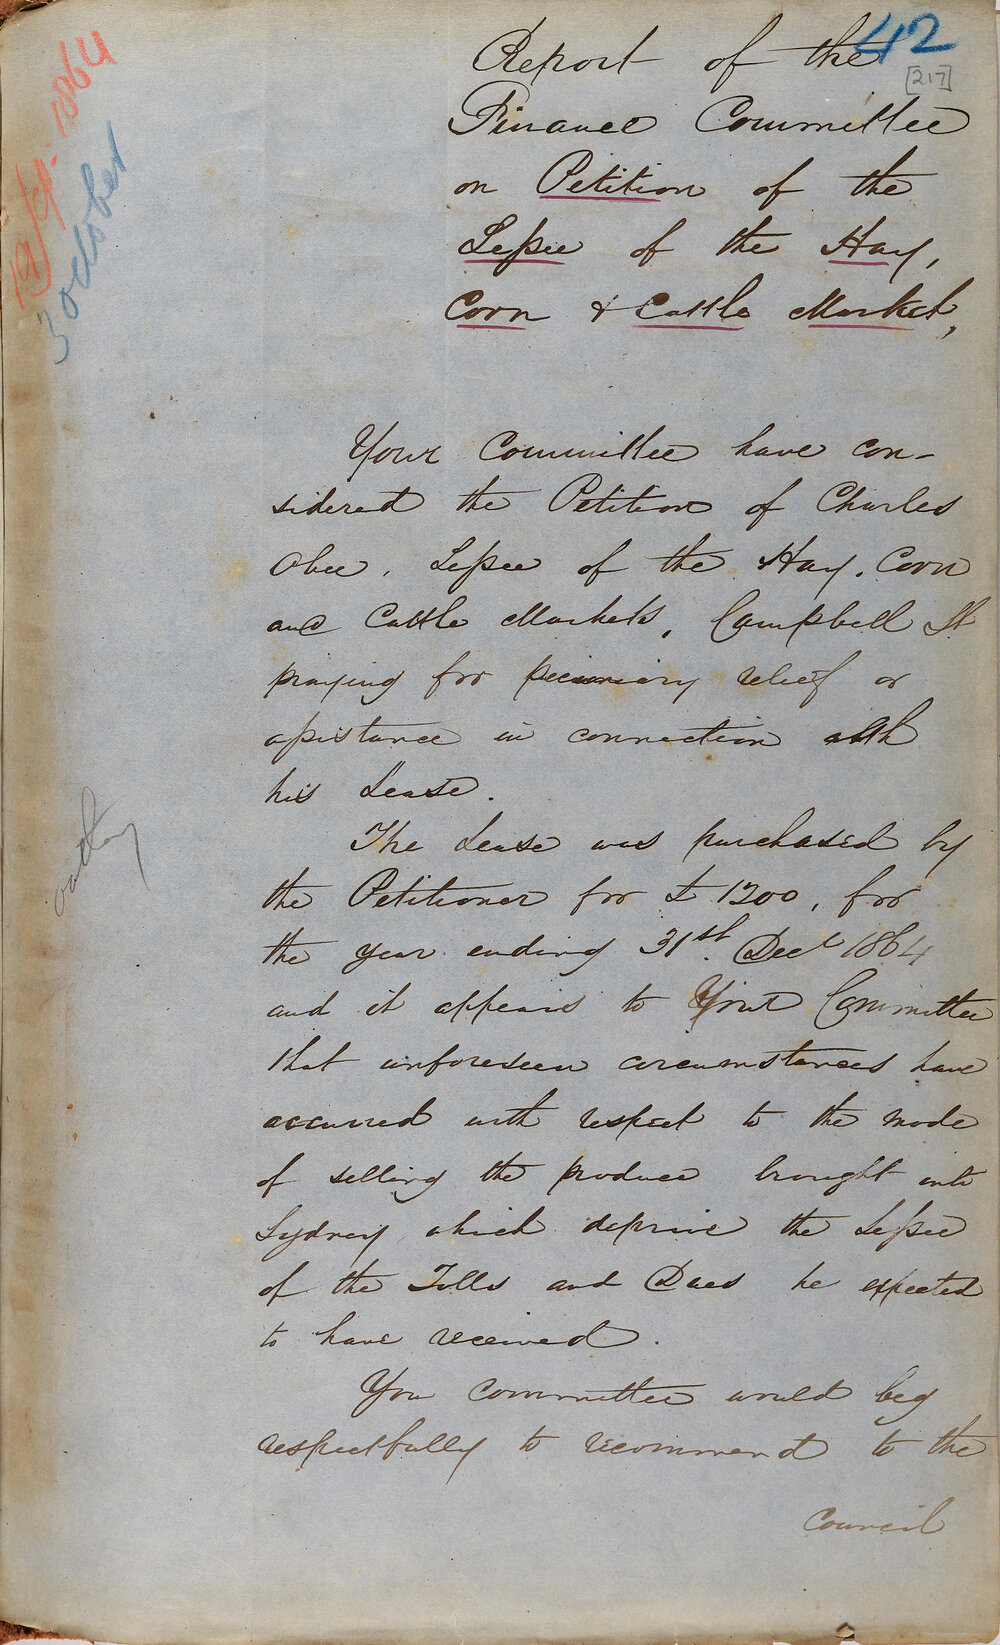 42
[217]
19/9. 1864
3 October
Report of the
Finance Committee
on Petition of the
Lessee of the Hay,
Corn & Cattle Market,
Your Committee have con-
sidered the Petition of Charles
Obee, Lessee of the Hay, Corn
and Cattle Markets, Campbell St
praying for pecuniary relief or
assistance in connection with
his Lease.
The Lease was purchased by
the Petitioner for £1200, for
the year ending 31st. Decr 1864
and it appears to Your Committee
that unforeseen circumstances have
occurred with respect to the mode
of selling the produce brought into
Sydney which deprive the Lessee
of the Tolls and Dues he expected
to have received.
You committee would beg
respectfully to recommend to the
Council